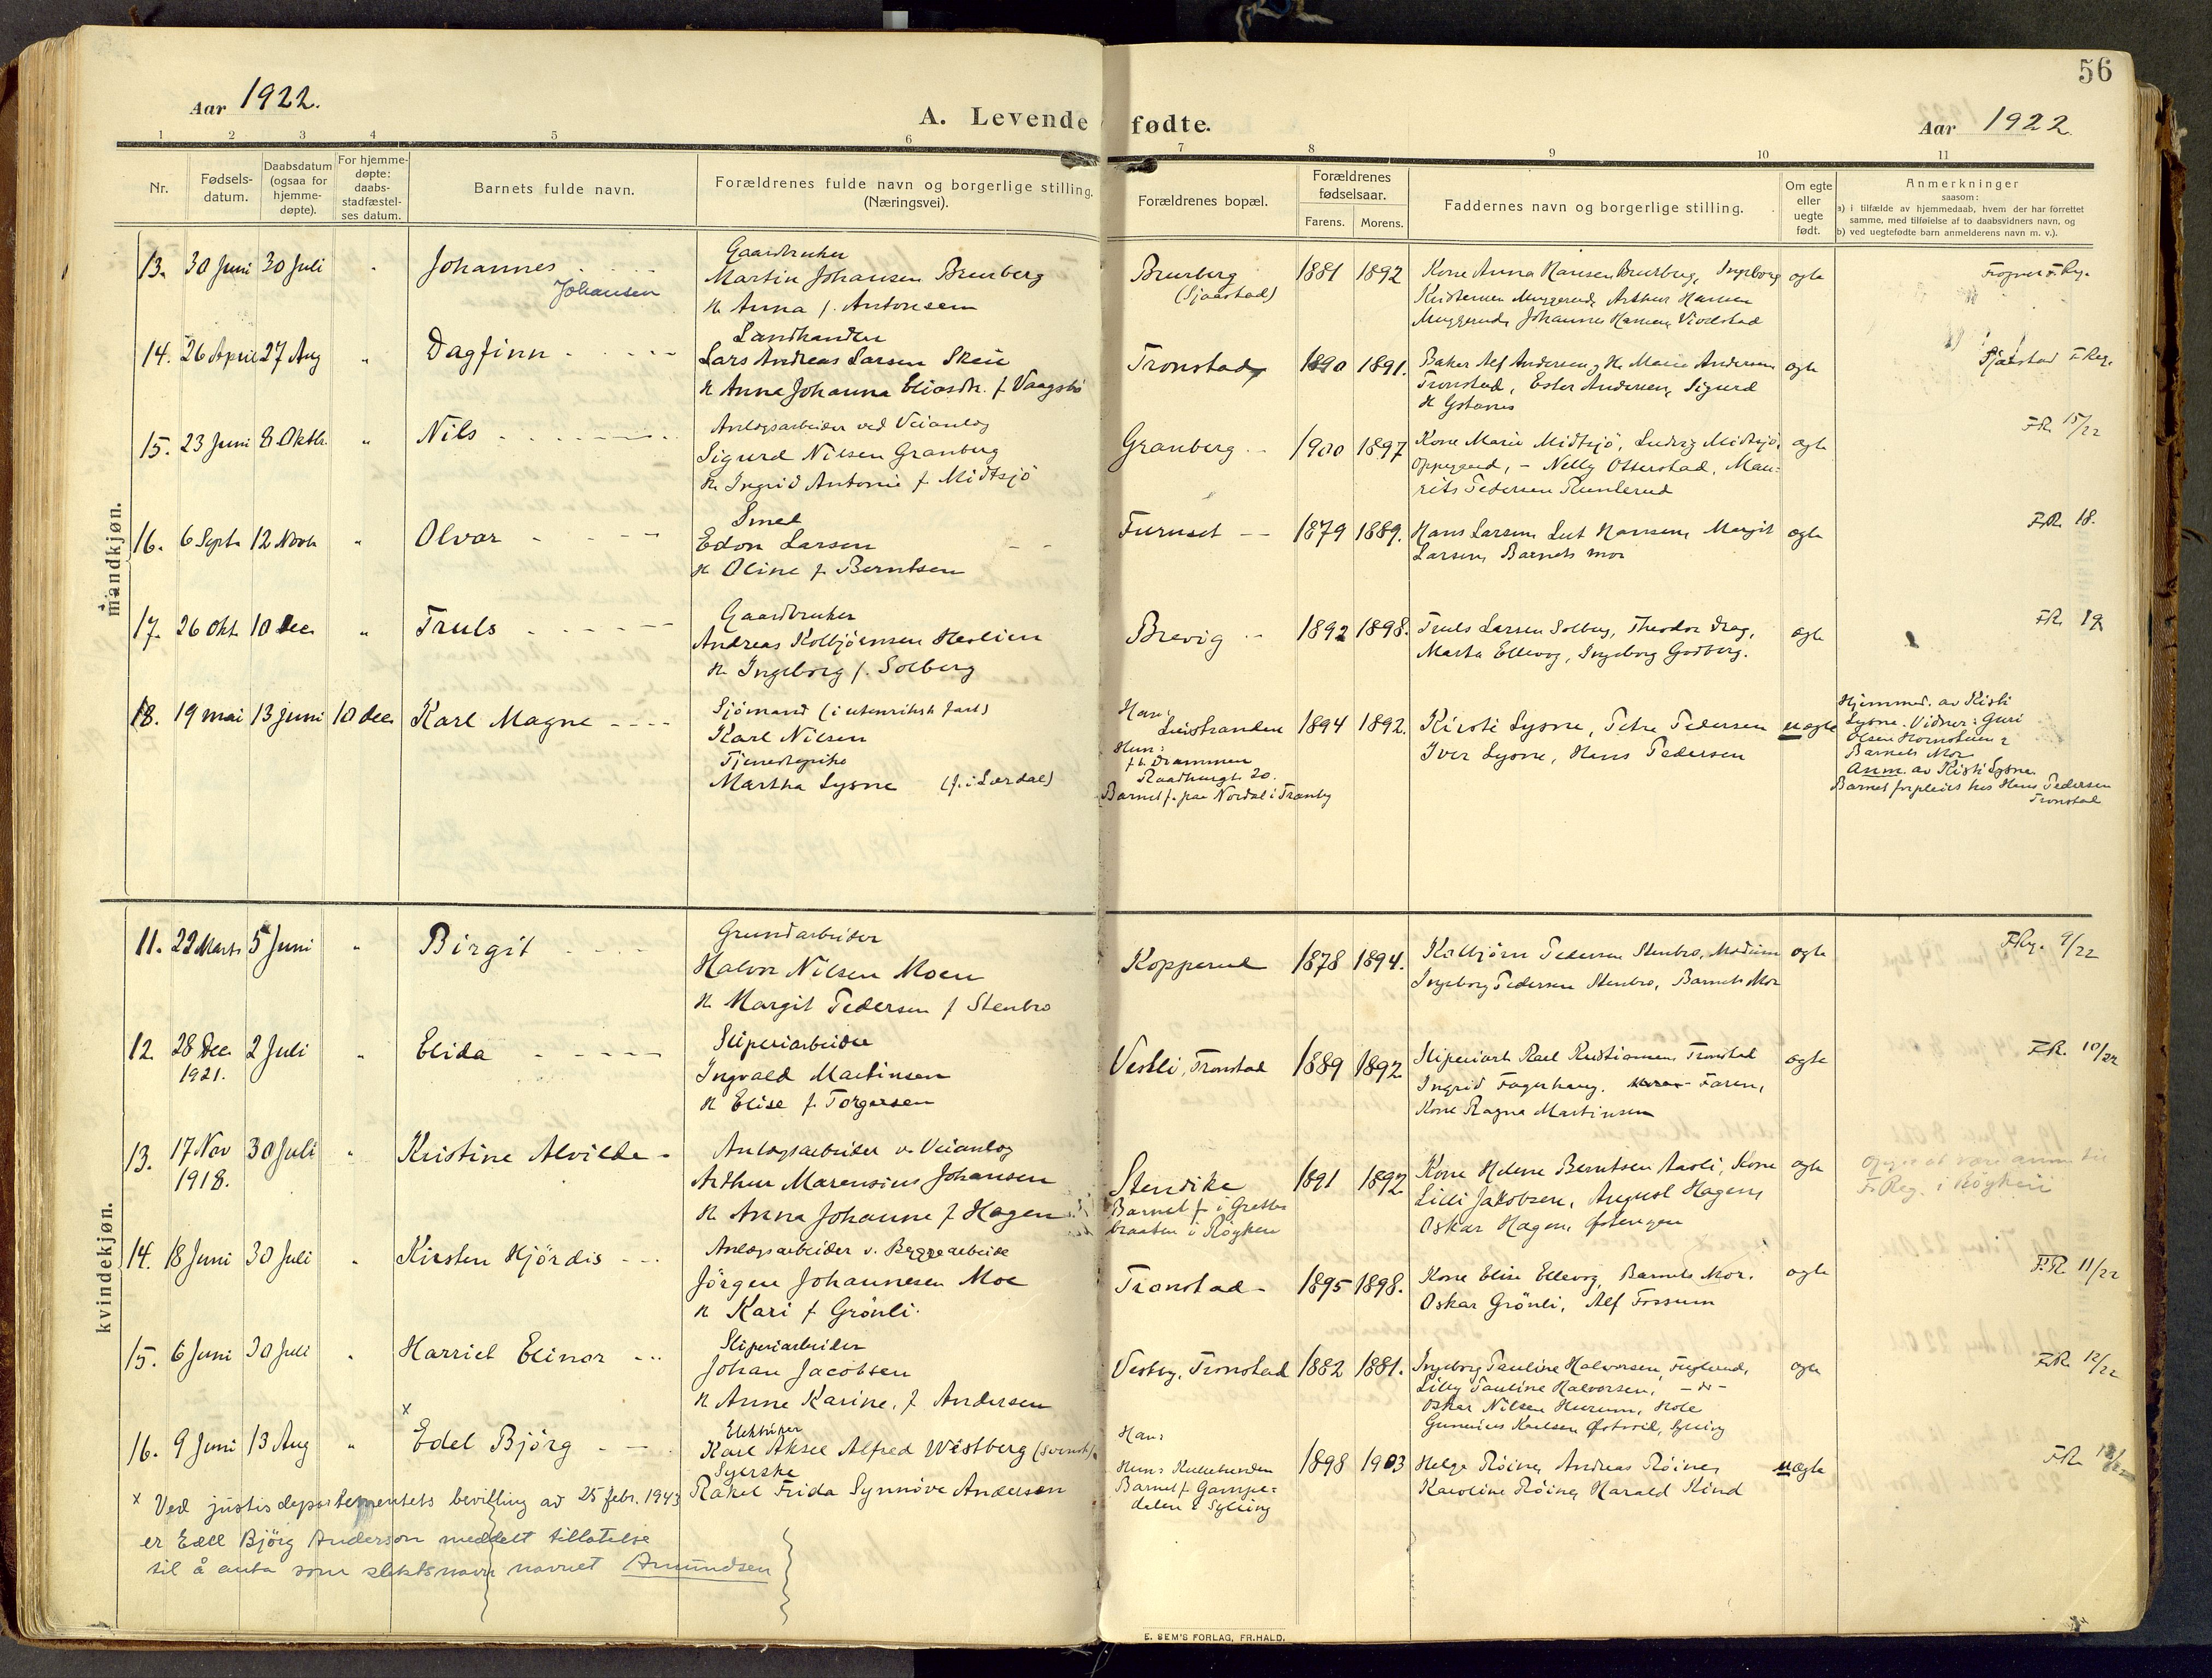 56
Aar 1922.
A. Levende fødte.
Aar 1922.
1 2 3 4 5 6 7 8 9 10 11
Nr.
Fødsels-
datum.
Daabsdatum
(ogsaa for
hjemme-
døpte).
For hjemme-
døpte:
daabs-
stadfæstel-
ses datum.
Barnets fulde navn.
Forældrenes fulde navn og borgerlige stilling.
(Næringsvei).
Forældrenes bopæl.
Forældrenes
fødselsaar.
Farens. Morens.
Faddernes navn og borgerlige stilling.
Om egte
eller
uegte
født.
Anmerkninger
saasom:
a) i tilfælde av hjemmedaab, hvem der har forrettet
samme, med tilføielse af to daabsvidners navn, og
b) ved uegtefødte barn anmelderens navn m. v.).
mandkjøn.
13. 30 Juni 30 Juli " Johannes
Johansen
Gaardbruker
Martin Johansen Brurberg
H. Anna f. Antonsen
Brurberg
(Sjaastad)
1881 1892
Kone Anna Hansen Brurberg, Ingeborg
Kristensen Muggerud, Arthur Hansen
Muggerud, Johannes Hansen, Vivelstad
egte
14. 26 April 27 Aug " Dagfinn
Landhandler
Lars Andreas Larsen Skeie
H Anna Johanna Eliasdr. f. Vaagsbö
Tronstad
1890 1891.
Baker Alf Andersen, H. Marie Andersen
Tronstad, Ester Andersen, Sigurd
egte
Sjaastad F. Reg.
15. 23 Juni 8 Oktbr. " Nils
Anlægsarbeider ved Veianlæg
Sigurd Nilsen Granberg
H. Ingrid Antonie f Midtsjö
Granberg
1900 1897
Kone Marie Midtsjö, Ludvig Midtsjö,
Oppegaard, - Nelly Otterstad, Mau-
rits Pedersen
egte
FR. 15/22
16. 6 Septr. 12 Novbr " Olvar
Smed
Edon Larsen
H Oline f Berntsen
Furuset
1879 1889.
Hans Larsen, Hansen, Margit
Larsen, Barnets mor
egte
F.R. 18.
17. 26 Okt. 10 Dec. " Truls
Gaardbruker
Andreas Kolbjörnsen
H. Ingeborg f. Solberg
Brevig
1892 1898.
Truls Larsen Solberg, Theodor Drag,
Marta Ellevog, Ingeborg Godberg.
egte
FR. 19
18. 19 mai 13 juni 10 dec. Karl Magne
Sjömand (i utenriksk fart)
Karl Nilsen
Tjenestepike
Martha Lysne (f. i Lærdal)
Han:
Hun:
f. t. Drammen
Raadhusgt. 20.
Barnet f. paa Nordal i Tranby
1894 1892.
Kirsti Lysne, Petra Pedersen
Iver Lysne, Hans Pedersen
uegte
Hjemmed. av Kisti
Lysne. Vidner: Guri
Olsen Hornstuen &
Barnets Mor
Anm. av Kisti Lysne.
Barnet forpleies hos Hans Pedersen
Tronstad
kvindekjøn.
11. 22 Marts 5 Juni " Birgit
Grundarbeider
Halvor Nilsen Moen
H. Margit Pedersen f Stenbro
Kopperud
1878 1894.
Kolbjörn Pedersen Stenbro, Modum
Ingeborg Pedersen Stenbro, Barnets Mor
egte
F.Reg. 9/22
12. 28 Dec. 2 Juli " Elida
1921.
Sliperiarbeider
Ingvald Martinsen
H Elise f. Torgersen
Vestli, Tronstad
1889 1892
Sliperiarb. Karl Kristiansen Tronstad
Ingrid Fagerhaug. Faren,
Kone Ragna Martinsen
egte
F.R. 10/22
13. 17 Nov 30 Juli " Kristine Alvilde
1918.
Anlægsarbeider v. Veianlæg
Arthur Marensius Johansen
H. Anna Johanne f Hagen
Stendike
Barnet f i Grette
braaten i Röyken
1891 1892
Kone Helene Berntsen Aasli, Kone
Lilli Jakobsen, August Hagen,
Oskar Hagen, Östengen
egte
F. Reg. i Röyken
14. 18 Juni 30 Juli " Kirsten Hjördis
Anlægsarbeider v. Byggearbeide
Jörgen Johannesen Moe
H Kari f Grönli.
Tronstad
1895 1898.
Kone Elise Ellevog, Barnets Mor.
Oskar Grönli, Alf Fossum
egte
F.R. 11/22
15. 6 Juni 30 Juli " Harriet Elinor
Sliperiarbeider
Johan Jacobsen
H Anne Karine, f Andersen
Vestby, Tronstad
1882 1881.
Ingeborg Pauline Halvorsen, Fuglerud,
Lilly Pauline Halvorsen, -"-
Oskar Nilsen Hurum, Hole
egte
F.R. 12/22
16. 9 Juni 13 Aug " x Edel Björg
Elektriker
Karl Aksel Alfred Westberg (svensk)
Syerske
Rakel Frida Synnöve Andersen
Han:
Hun:
Barnet f. Gampe-
dalen i Sylling
1898 1903
Helga Röine, Andreas Röine,
Karoline Röine, Harald Kind
uegte
FR.
x Ved justisdepartementets bevilling av 25 febr. 1943
er Edel Björg Anderson meddelt tillatelse
til å anta som slektsnavn navnet Amundsen
E. SEM'S FORLAG, FR.HALD.